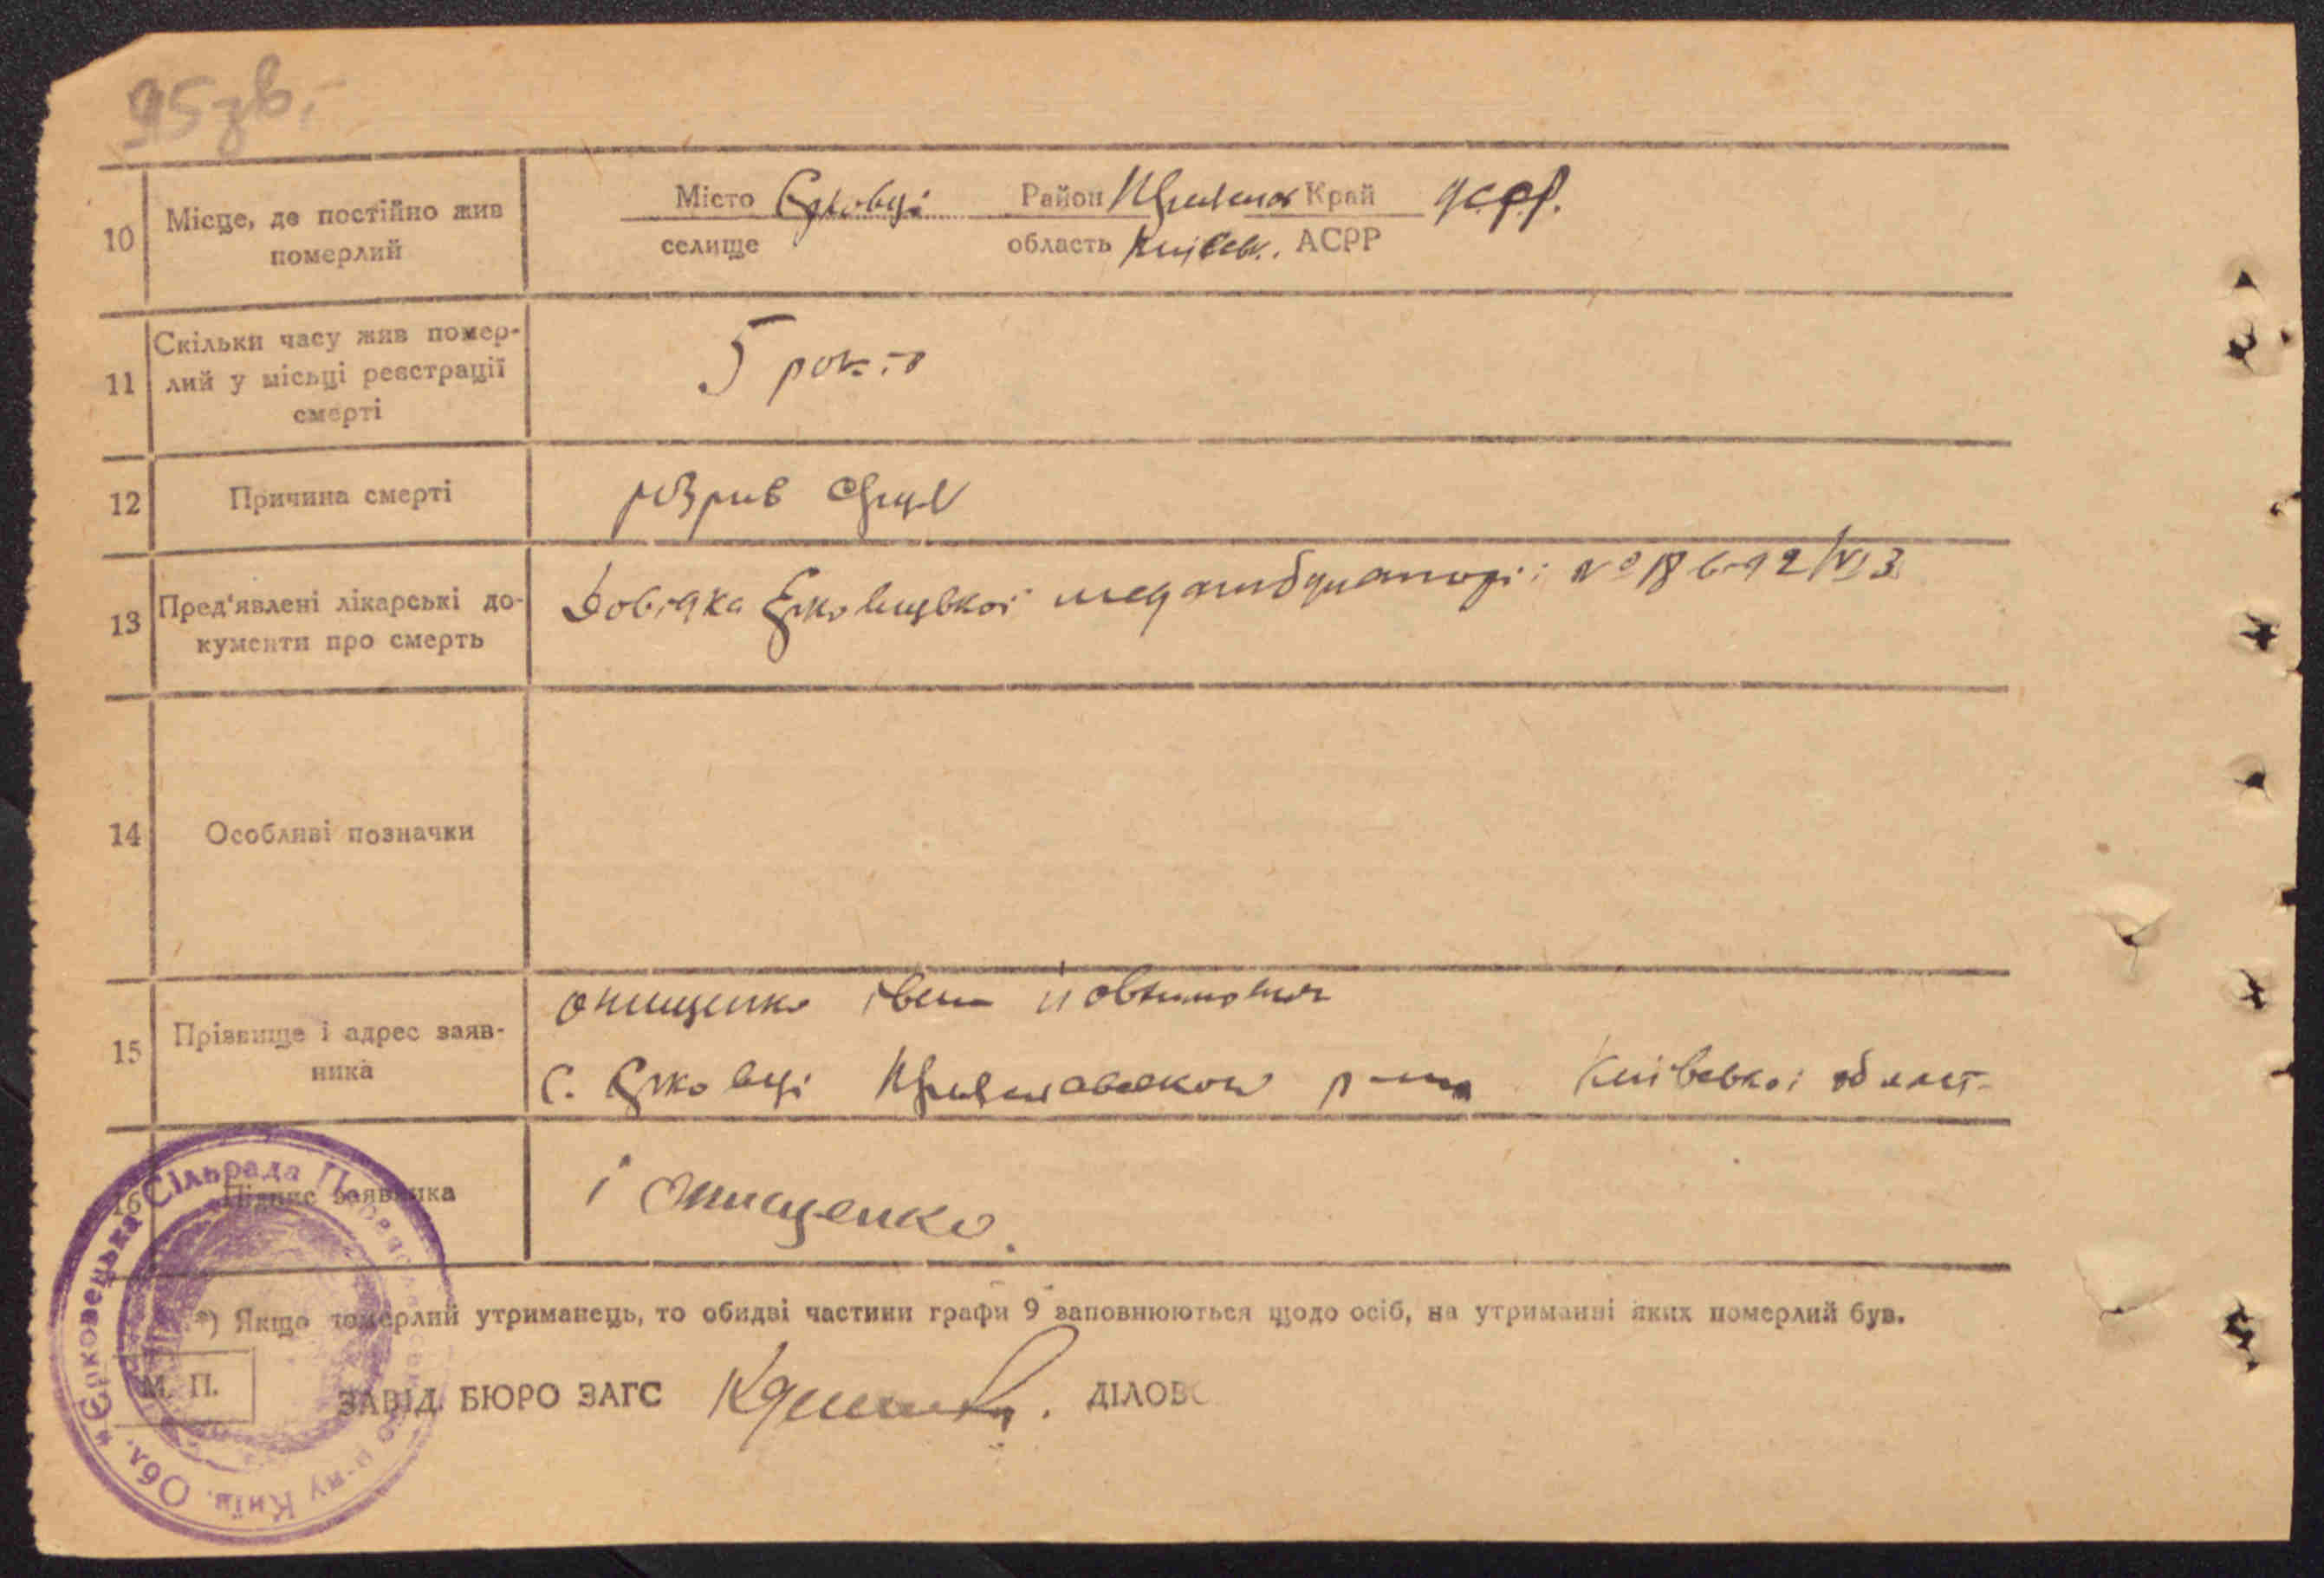 95 зв.
10 Місце, де постійно жив померлий
Місто Єрковці Район Край УСРР.
селище область Київськ. АСРР
11 Скільки часу жив помер-
лий у місьці реєстрації
смерті
5 років
12 Причина смерті
розрив серця
13 Пред'явлені лікарські до-
кументи про смерть
Довідка Єрковецької медамбулаторії №
14 Особливі позначки
15 Прізвище і адрес заяв-
ника
Онищенко Іван
с. Єрковці р-на Київської област
16 Підпис заявника
І Онищенко.
*) Якщо померлий утриманець, то обидві частини графи 9 заповнюються щодо осіб, на утриманні яких померлий був.
М. П.
ЗАВІД. БЮРО ЗАГС ДІЛОВ
Єрковецька Сільрада р-ну Київ. Обл.